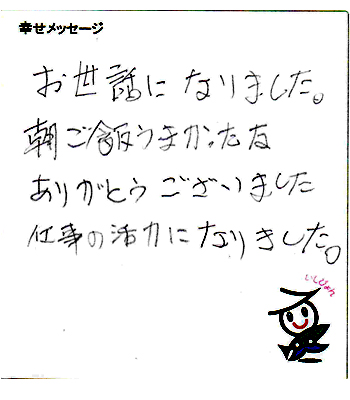 幸せメッセージ
お世話になりました。
朝ご飯うまかったな
ありがとうございました
仕事の活力になりました。